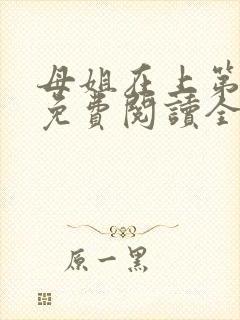 母姐在上第
免费閱讀全
原一黑